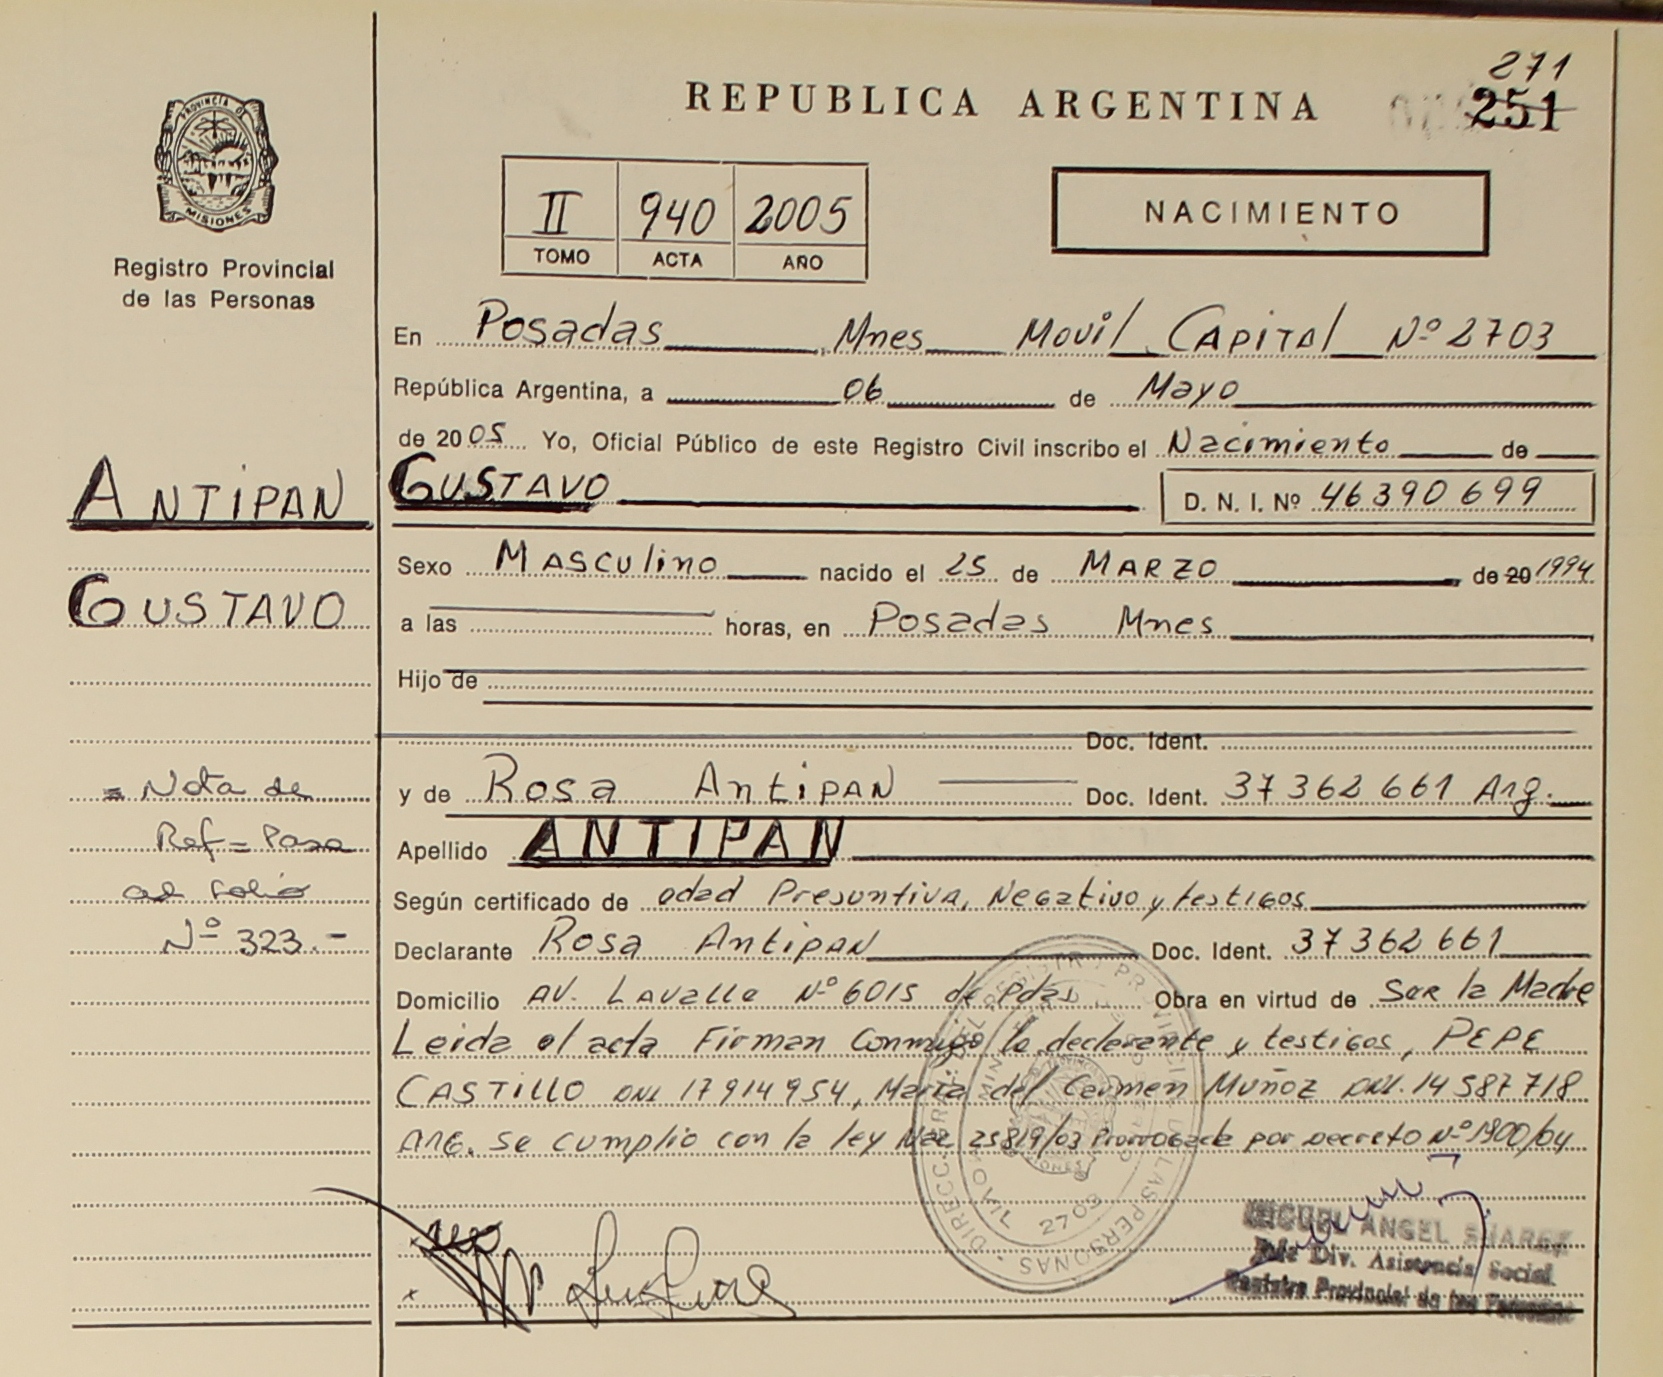 271
REPUBLICA ARGENTINA
251
PROVINCIA DE
MISIONES
Registro Provincial
de las Personas
II 940 2005
TOMO ACTA AÑO
NACIMIENTO
En Posadas Mnes Movil Capital Nº 2703
República Argentina, a 06 de Mayo
de 2005 Yo, Oficial Público de este Registro Civil inscribo el Nacimiento de
ANTIPAN
GUSTAVO D. N. I. Nº 46390699
Sexo Masculino nacido el 25 de MARZO de 20 1994
GUSTAVO
a las horas, en Posadas Mnes
Hijo de
Doc. Ident.
= Nota de
y de Rosa Antipan Doc. Ident. 37362661 Arg.
Ref = Pasa
Apellido ANTIPAN
al folio
Según certificado de edad Presuntiva, Negativo y testigos
Nº 323.-
Declarante Rosa Antipan Doc. Ident. 37362661
Domicilio AV. Lavalle Nº 6015 de Pdas Obra en virtud de Ser la Madre
Leida el acta Firman Conmigo la declarante y testigos, PEPE
CASTILLO DNI 17914954, Maria del Carmen Muñoz DNI. 14587718
ARG. Se cumplio con la ley Nac 25819/03 Prorrogada por Decreto Nº 1900/04
DIRECC. GRAL. DEL REGISTRO PROVINCIAL DE LAS PERSONAS
MOVIL 2703
MIGUEL ANGEL SUAREZ
Jefe Div. Asistencia Social
Registro Provincial de las Personas